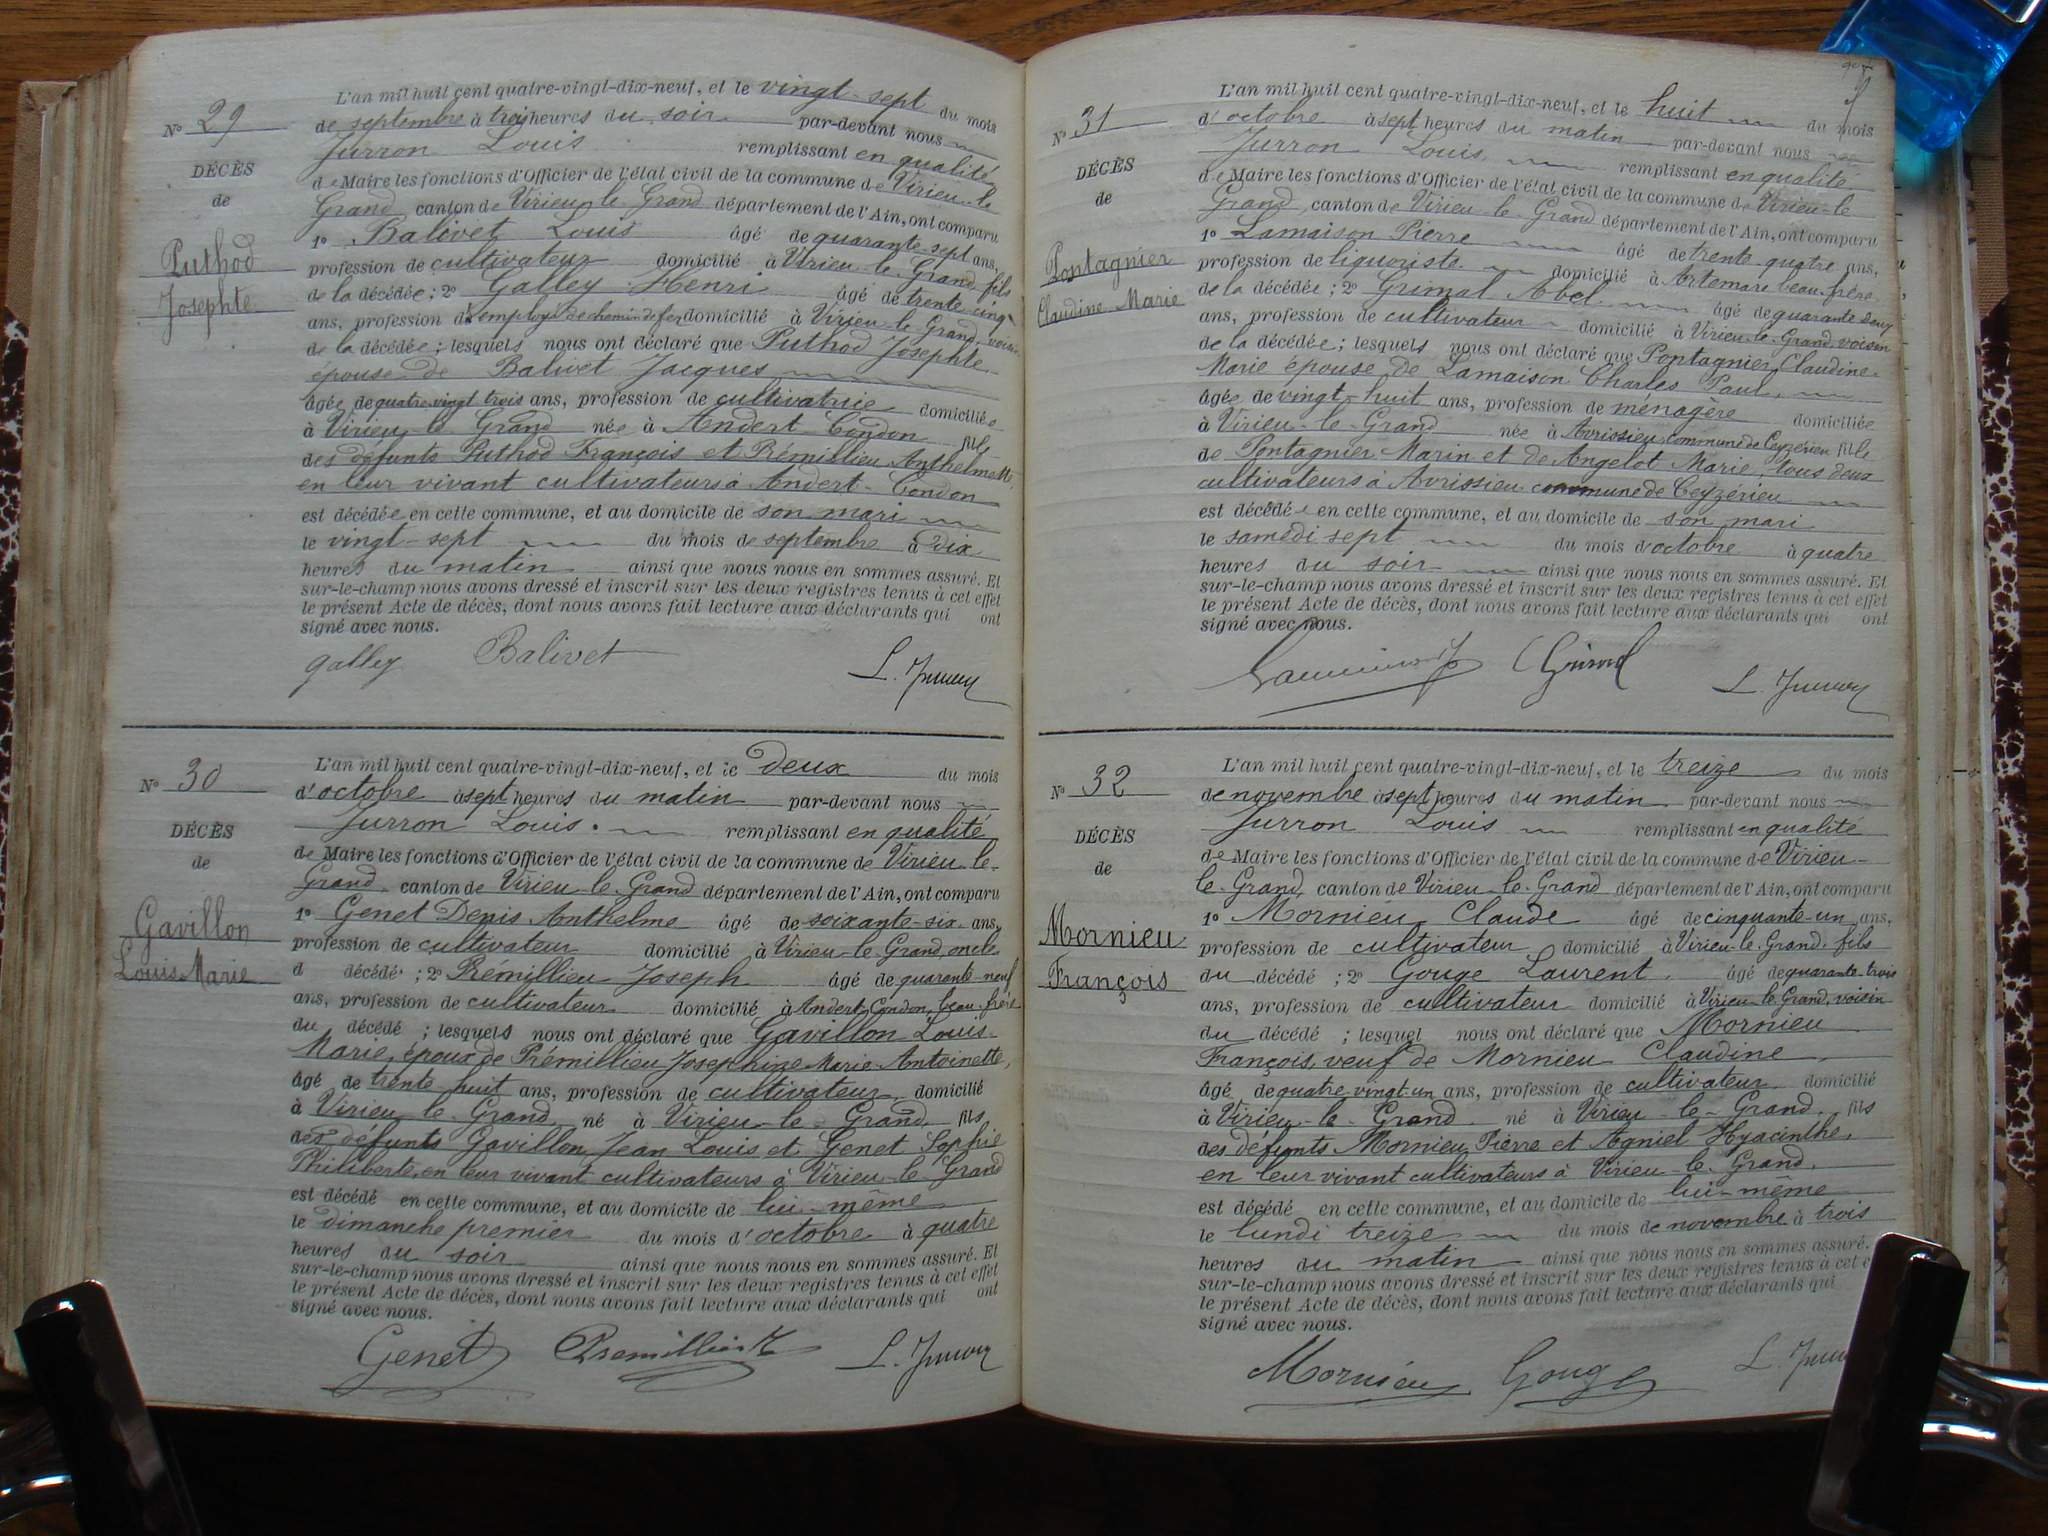 N° 29
DÉCÈS
de
Puthod
Josephte
L'an mil huit cent quatre-vingt-dix-neuf, et le vingt-sept du mois
de septembre à trois heures du soir par-devant nous
Jurron Louis remplissant en qualité
de Maire les fonctions d'Officier de l'état civil de la commune de Virieu-le
Grand canton de Virieu-le-Grand département de l'Ain, ont comparu
1° Balivet Louis âgé de quarante-sept ans,
profession de cultivateur domicilié à Virieu-le-Grand, fils
de la décédée ; 2° Galley Henri âgé de trente-cinq
ans, profession d'employé de chemin de fer domicilié à Virieu-le-Grand, voisin
de la décédée ; lesquels nous ont déclaré que Puthod Josephte
épouse de Balivet Jacques
âgée de quatre-vingt-trois ans, profession de cultivatrice domiciliée
à Virieu-le-Grand née à Andert-Condon fille
des défunts Puthod François et Prémillieu Anthelmette,
en leur vivant cultivateurs à Andert-Condon
est décédée en cette commune, et au domicile de son mari
le vingt-sept du mois de septembre à dix
heures du matin ainsi que nous nous en sommes assuré. Et
sur-le-champ nous avons dressé et inscrit sur les deux registres tenus à cet effet
le présent Acte de décès, dont nous avons fait lecture aux déclarants qui ont
signé avec nous.
Galley Balivet L. Jurron
N° 30
DÉCÈS
de
Gavillon
Louis Marie
L'an mil huit cent quatre-vingt-dix-neuf, et le deux du mois
d'octobre à sept heures du matin par-devant nous
Jurron Louis. remplissant en qualité
de Maire les fonctions d'Officier de l'état civil de la commune de Virieu-le-
Grand canton de Virieu-le-Grand département de l'Ain, ont comparu
1° Genet Denis Anthelme âgé de soixante-six ans,
profession de cultivateur domicilié à Virieu-le-Grand, oncle
d décédé ; 2° Prémillieu Joseph âgé de quarante-neuf
ans, profession de cultivateur domicilié à Andert-Condon, beau-frère
du décédé ; lesquels nous ont déclaré que Gavillon Louis-
Marie, époux de Prémillieu Josephine Marie Antoinette,
âgé de trente-huit ans, profession de cultivateur domicilié
à Virieu-le-Grand né à Virieu-le-Grand fils
des défunts Gavillon Jean Louis et Genet Sophie
Philiberte, en leur vivant cultivateurs à Virieu-le-Grand
est décédé en cette commune, et au domicile de lui-même
le dimanche premier du mois d'octobre à quatre
heures du soir ainsi que nous nous en sommes assuré. Et
sur-le-champ nous avons dressé et inscrit sur les deux registres tenus à cet effet
le présent Acte de décès, dont nous avons fait lecture aux déclarants qui ont
signé avec nous.
Genet Premillieu J L. Jurron
N° 31
DÉCÈS
de
Pontagnier
Claudine Marie
L'an mil huit cent quatre-vingt-dix-neuf, et le huit du mois
d'octobre à sept heures du matin par-devant nous
Jurron Louis, remplissant en qualité
de Maire les fonctions d'Officier de l'état civil de la commune de Virieu-le
Grand, canton de Virieu-le-Grand département de l'Ain, ont comparu
1° Lamaison Pierre âgé de trente-quatre ans,
profession de liquoriste domicilié à Artemare, beau-frère
de la décédée ; 2° Grimal Abel âgé de quarante deux
ans, profession de cultivateur domicilié à Virieu-le-Grand, voisin
de la décédée ; lesquels nous ont déclaré que Pontagnier Claudine-
Marie épouse de Lamaison Charles Paul,
âgée de vingt-huit ans, profession de ménagère domiciliée
à Virieu-le-Grand née à Avrissieu commune de Ceyzérieu fille
de Pontagnier Marin et de Angelot Marie, tous deux
cultivateurs à Avrissieu commune de Ceyzérieu
est décédée en cette commune, et au domicile de son mari
le samedi sept du mois d'octobre à quatre
heures du soir ainsi que nous nous en sommes assuré. Et
sur-le-champ nous avons dressé et inscrit sur les deux registres tenus à cet effet
le présent Acte de décès, dont nous avons fait lecture aux déclarants qui ont
signé avec nous.
L. Jurron
N° 32
DÉCÈS
de
Mornieu
François
L'an mil huit cent quatre-vingt-dix-neuf, et le treize du mois
de novembre à sept heures du matin par-devant nous
Jurron Louis remplissant en qualité
de Maire les fonctions d'Officier de l'état civil de la commune de Virieu-
le-Grand, canton de Virieu-le-Grand département de l'Ain, ont comparu
1° Mornieu Claude âgé de cinquante-un ans,
profession de cultivateur domicilié à Virieu-le-Grand, fils
du décédé ; 2° Gouge Laurent, âgé de quarante-trois
ans, profession de cultivateur domicilié à Virieu-le-Grand, voisin
du décédé ; lesquel nous ont déclaré que Mornieu
François, veuf de Mornieu Claudine,
âgé de quatre-vingt-un ans, profession de cultivateur domicilié
à Virieu-le-Grand né à Virieu-le-Grand, fils
des défunts Mornieu Pierre et Agniel Hyacinthe,
en leur vivant cultivateurs à Virieu-le-Grand,
est décédé en cette commune, et au domicile de lui-même
le lundi treize du mois de novembre à trois
heures du matin ainsi que nous nous en sommes assuré.
sur-le-champ nous avons dressé et inscrit sur les deux registres tenus à cet e
le présent Acte de décès, dont nous avons fait lecture aux déclarants qui
signé avec nous.
Mornieu Gouge L. Jurr